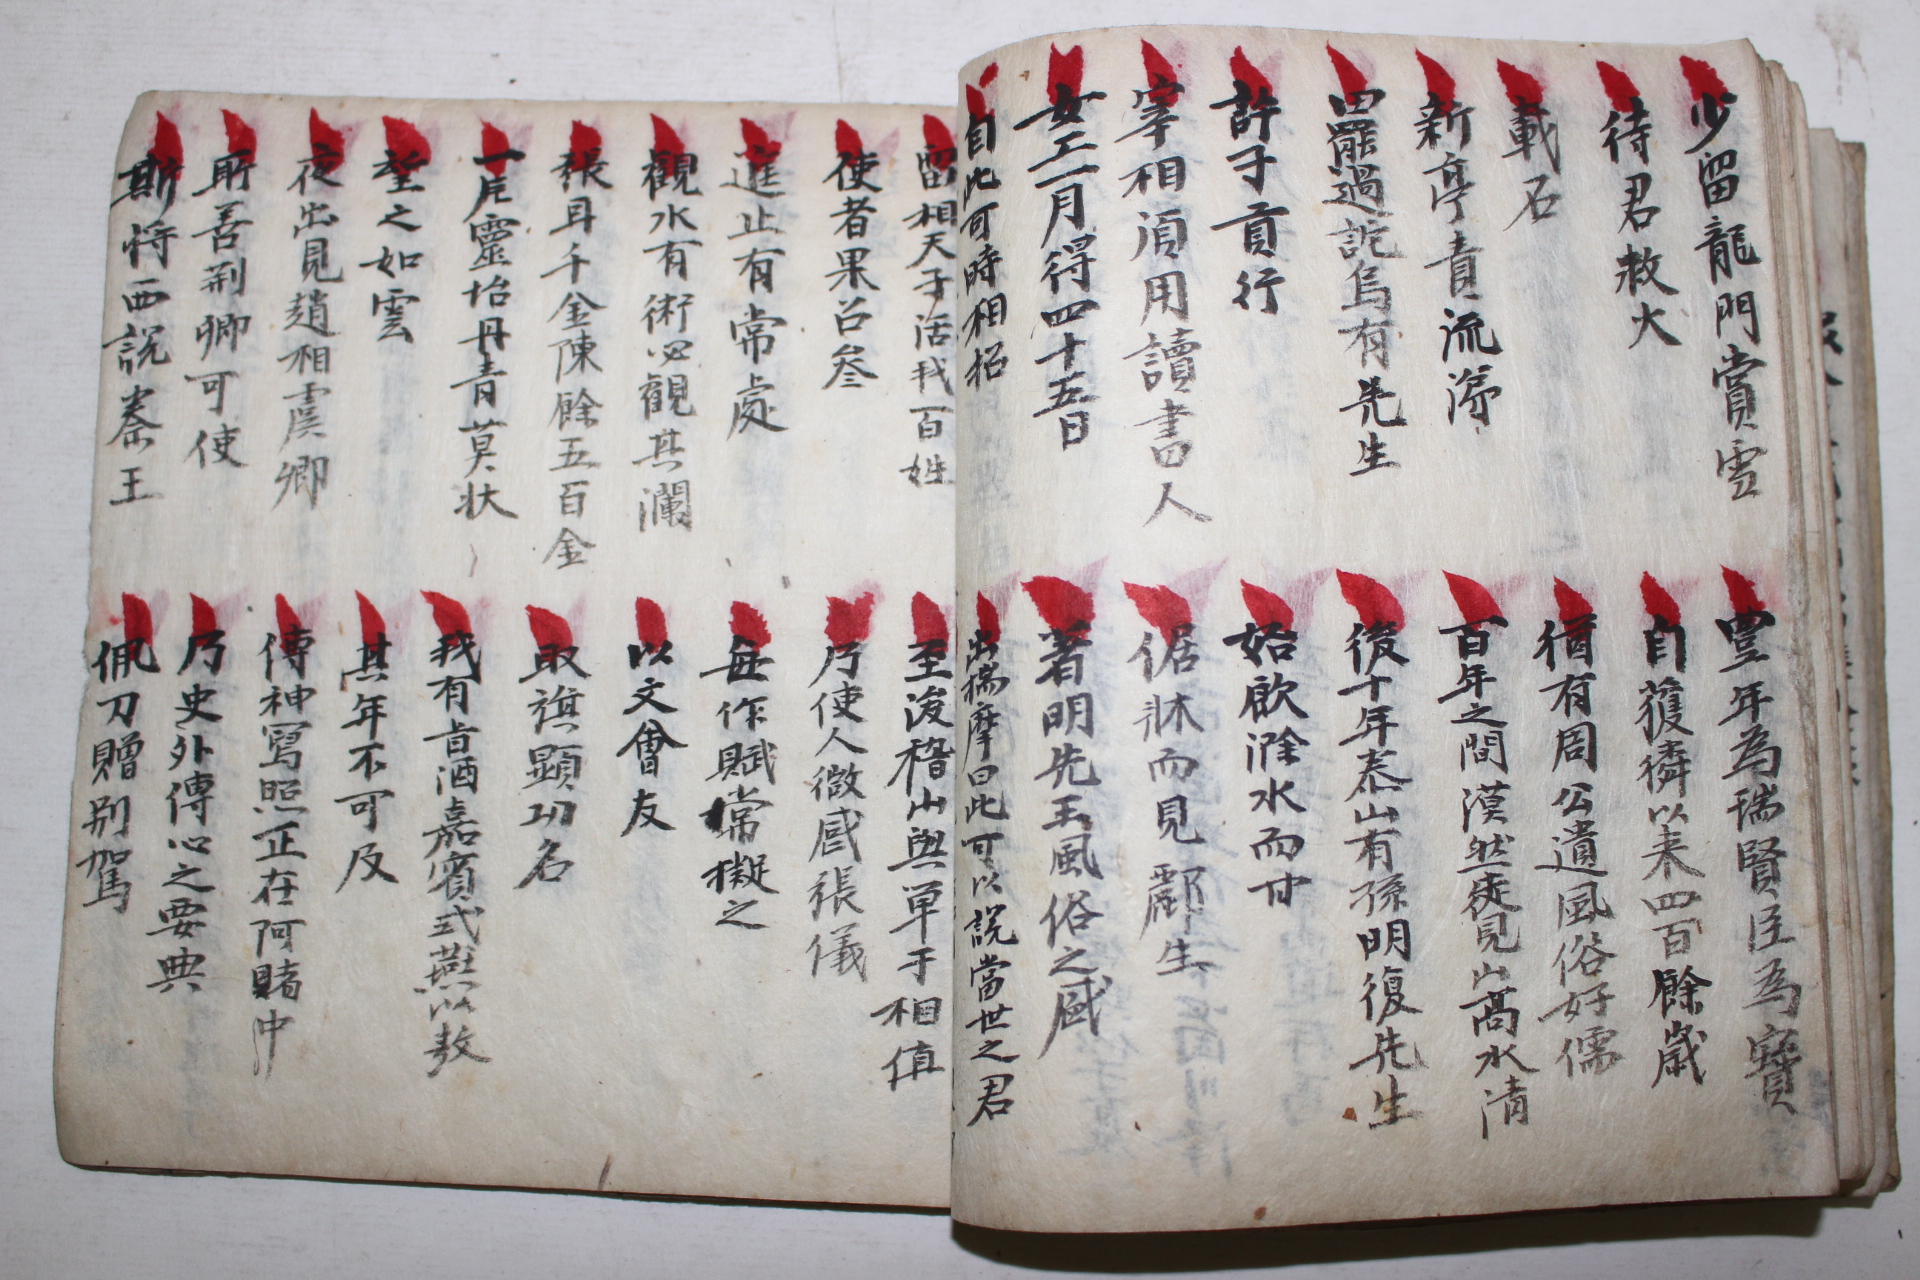 少留龍門賞雪
待君救火
載石
新亭責流涕
田罷過訪烏有先生
許子貢行
宰相須用讀書人
女工一月得四十五日
自此可時相招
豊年為瑞賢臣為寶
自獲麟以来四百餘歳
猶有周公遺風俗好儒
百年之間漠然徒見山髙水清
後十年泰山有孫明復先生
始飮滁水而甘
倨牀而見酈生
著明先王風俗之盛
出揣摩曰此可以說當世之君
留相天子活我百姓
使者果召參
進止有常處
觀水有術必觀其瀾
張耳千金陳餘五百金
一片靈坮丹青莫状
望之如雲
夜出見趙相虞卿
所善荆卿可使
斯将西說秦王
至浚稽山與單于相值
乃使人微感張儀
每作賦常擬之
以文會友
取旗顯功名
我有旨酒嘉賓式燕以敖
其年不可及
傳神寫照正在阿賭中
乃史外傳心之要典
佩刀贈别駕